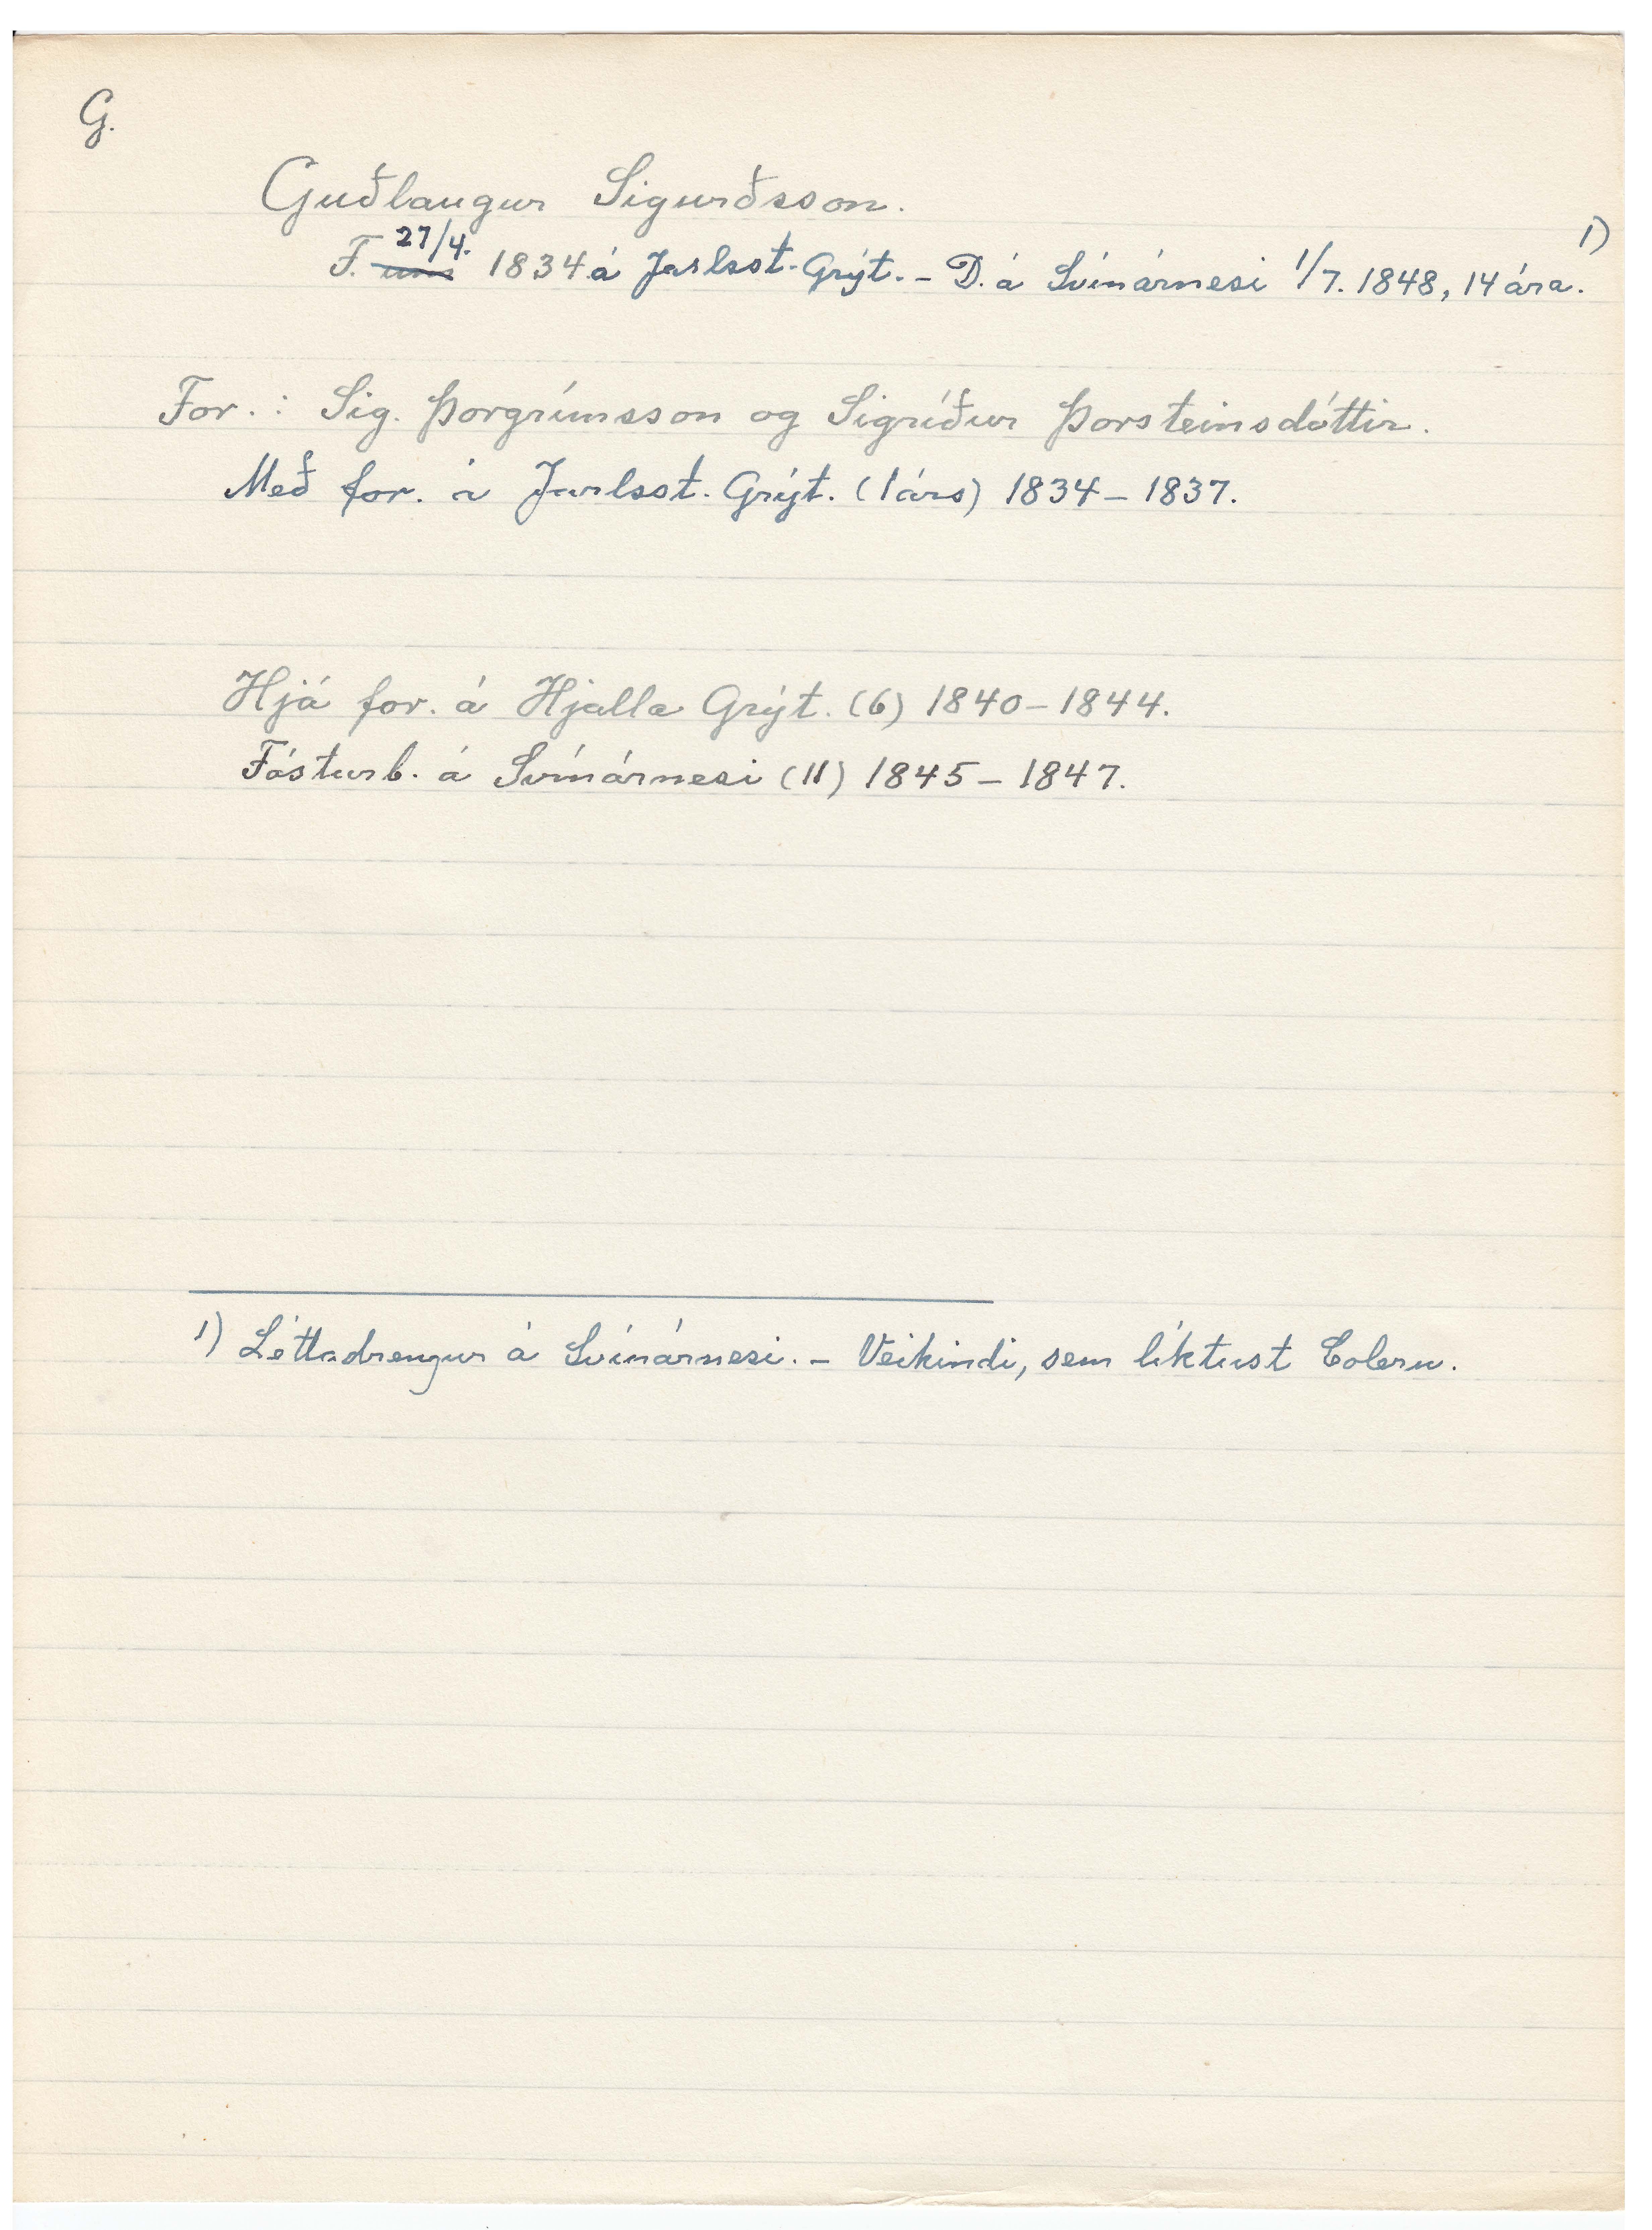 G.
Guðlaugur Sigurðsson.
F. um 27/4. 1834 á Jarlsst. Grýt. – D. á Svínárnesi 1/7. 1848, 14 ára. 1)
For.: Sig. Þorgrímsson og Sigríður Þorsteinsdóttir.
Með for. á Jarlsst. Grýt. (1 árs) 1834 – 1837.
Hjá for. á Hjalla Grýt. (6) 1840 – 1844.
Fósturb. á Svínárnesi (11) 1845 – 1847.
1) Léttadrengur á Svínárnesi. – Veikindi, sem líktust Coleru.